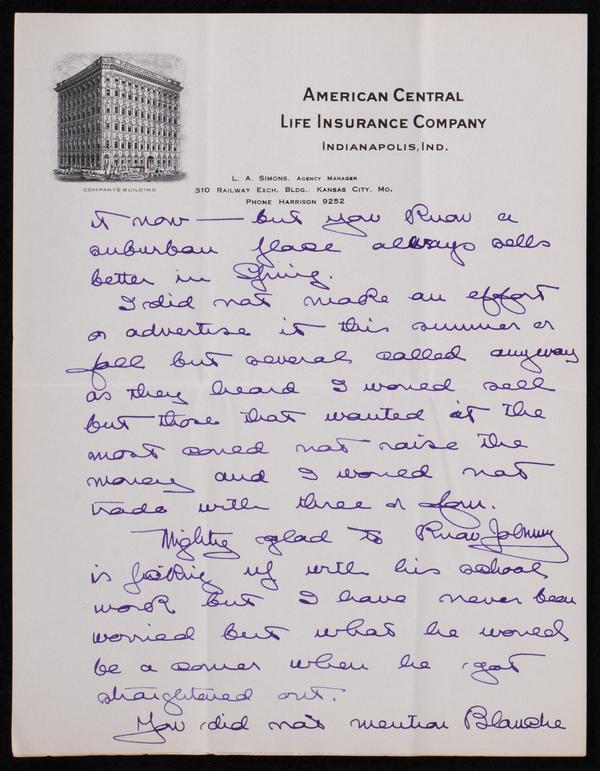 AMERICAN CENTRAL
LIFE INSURANCE COMPANY
INDIANAPOLIS, IND.
COMPANY'S BUILDING
L. A. SIMONS, AGENCY MANAGER
310 RAILWAY EXCH. BLDG., KANSAS CITY, MO.
PHONE HARRISON 9252
it now — but you know a
suburban place always sells
better in Spring.
I did not make an effort
or advertise it this summer or
fall but several called anyway
as they heard I would sell
but those that wanted it the
most could not raise the
money and I would not
trade with three or four.
Mighty glad to know Johnny
is picking up with his school
work but I have never been
worried but what he would
be a comer when he got
straightened out.
You did not mention Blanche